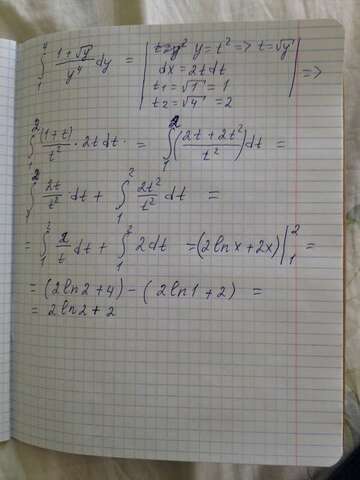 ∫₁⁴ (1+√y)/y⁴ dy = | y = t² => t = √y | =>
dx = 2t dt
t₁ = √1 = 1
t₂ = √4 = 2
∫₁² (1+t)/t² · 2t dt · = ∫₁² ((2t + 2t²)/t²) dt =
∫₁² 2t/t² dt + ∫₁² 2t²/t² dt =
= ∫₁² 2/t dt + ∫₁² 2 dt = (2 ln x + 2x) |₁² =
= (2 ln 2 + 4) - (2 ln 1 + 2) =
= 2 ln 2 + 2